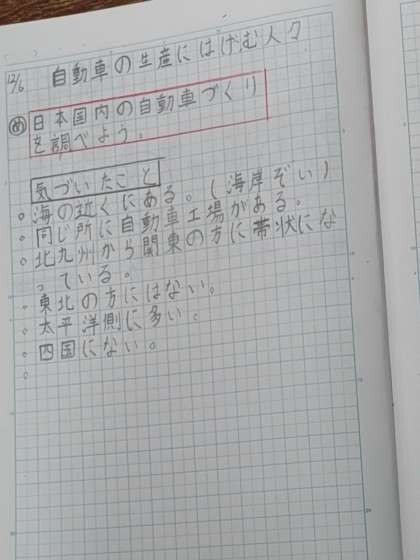 12/6 自動車の生産にはげむ人々
め 日本国内の自動車づくり
を調べよう。
気づいたこと
。海の近くにある。(海岸ぞい)
。同じ所に自動車工場がある。
。北九州から関東の方に帯状にな
っている。
。東北の方にはない。
。太平洋側に多い。
。四国にない。
。